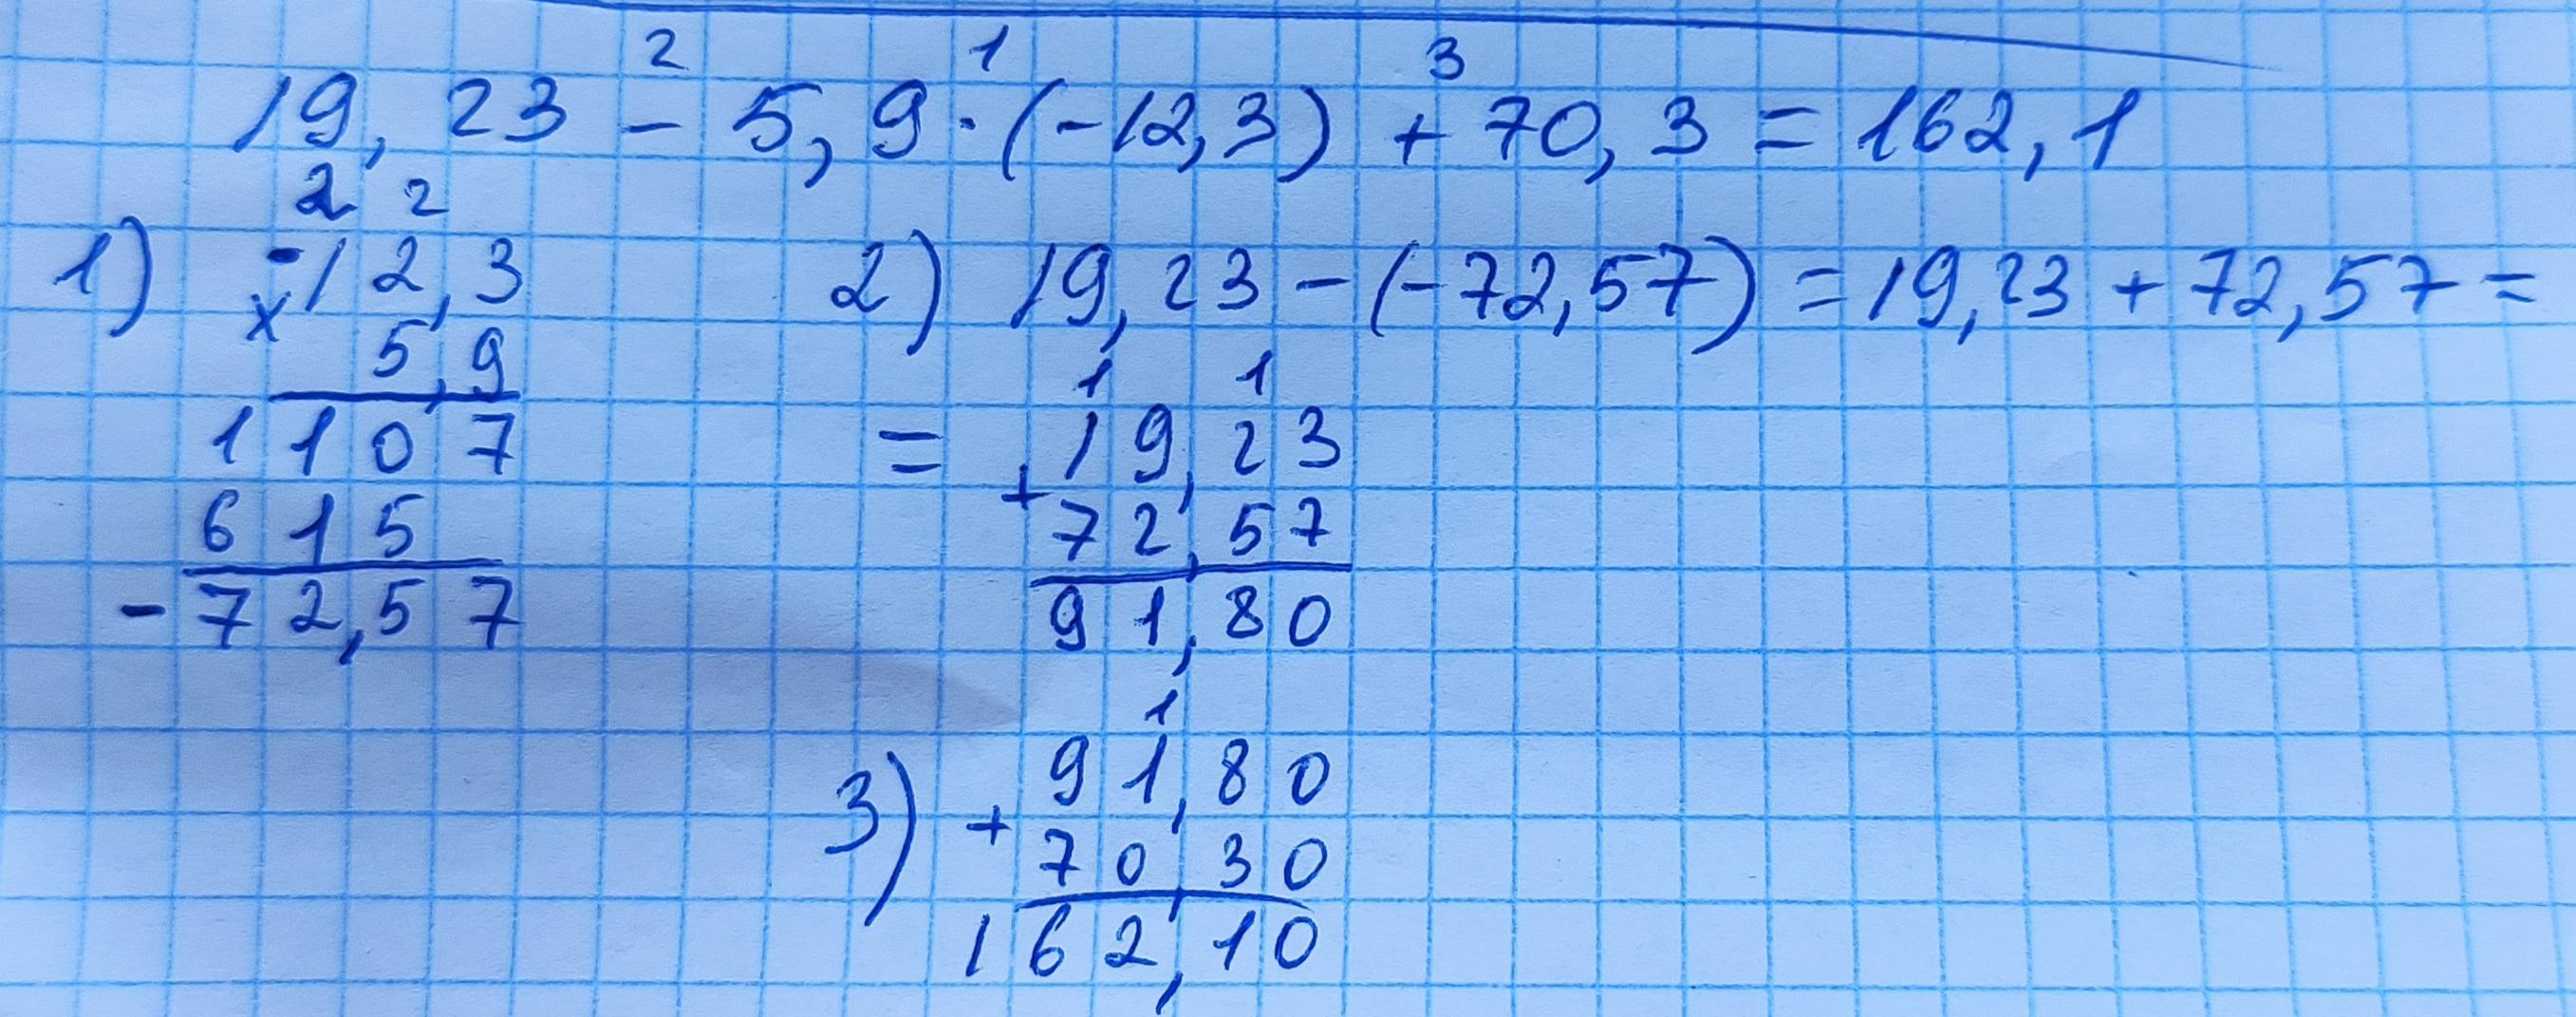 2 1 3
19,23 - 5,9 · (-12,3) + 70,3 = 162,1
2 2
1) -12,3
× 5,9
1107
615
-72,57
2) 19,23 - (-72,57) = 19,23 + 72,57 =
1 1
= 19,23
+ 72,57
91,80
1
3) 91,80
+ 70,30
162,10